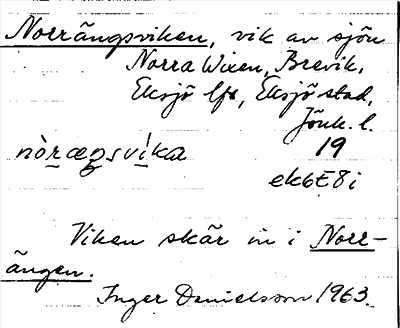 Norrängsviken, vik av sjön
Norra Wixen, Brevik,
Eksjö lfs, Eksjö stad,
Jönk. l.
nòrægsvíka 19
ek6E8i
Viken skär in i Norr-
ängen.
Inger Danielsson 1963.